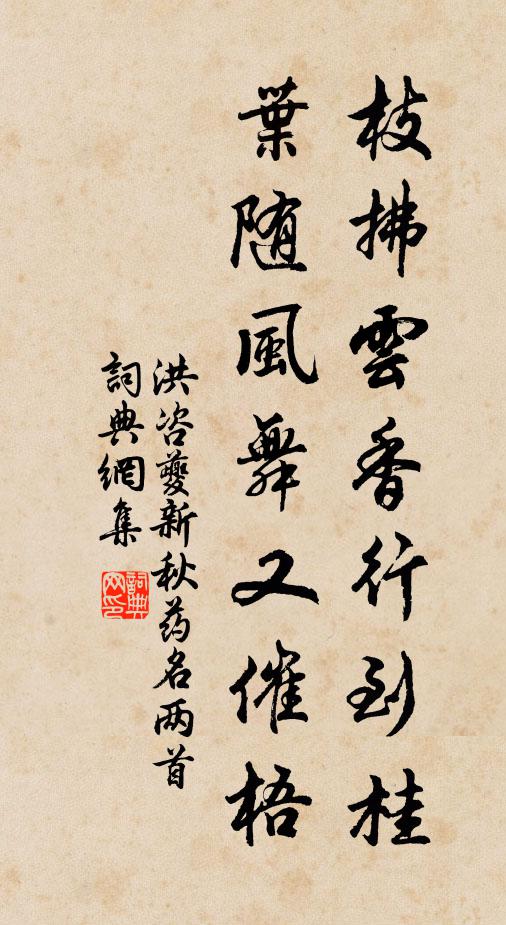 枝拂雲香行到桂
葉随風舞又催梧
洪咨夔新秋药名两首
詞典網集
詞典网印